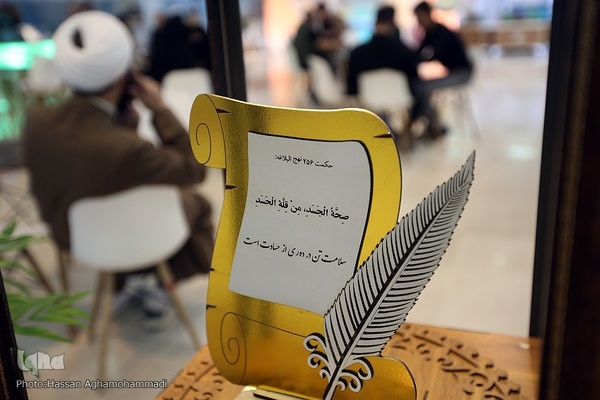 حکمت ۲۵۶ نهج البلاغه:
صِحَّةُ الْجَسَدِ، مِنْ قِلَّةِ الْحَسَدِ
سلامت تن در دوری از حسادت است
iqna
Photo:Hassan Aghamohammadi